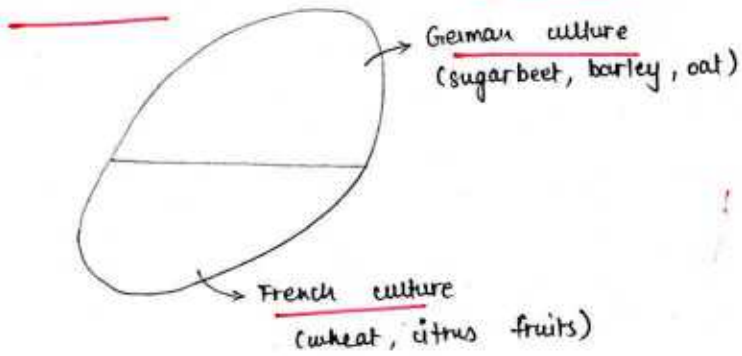 German culture
(sugarbeet, barley, oat)
French culture
(wheat, citrus fruits)